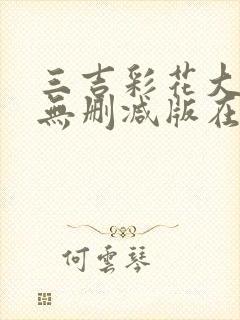 三吉彩花大
無删減版在
何雲琴